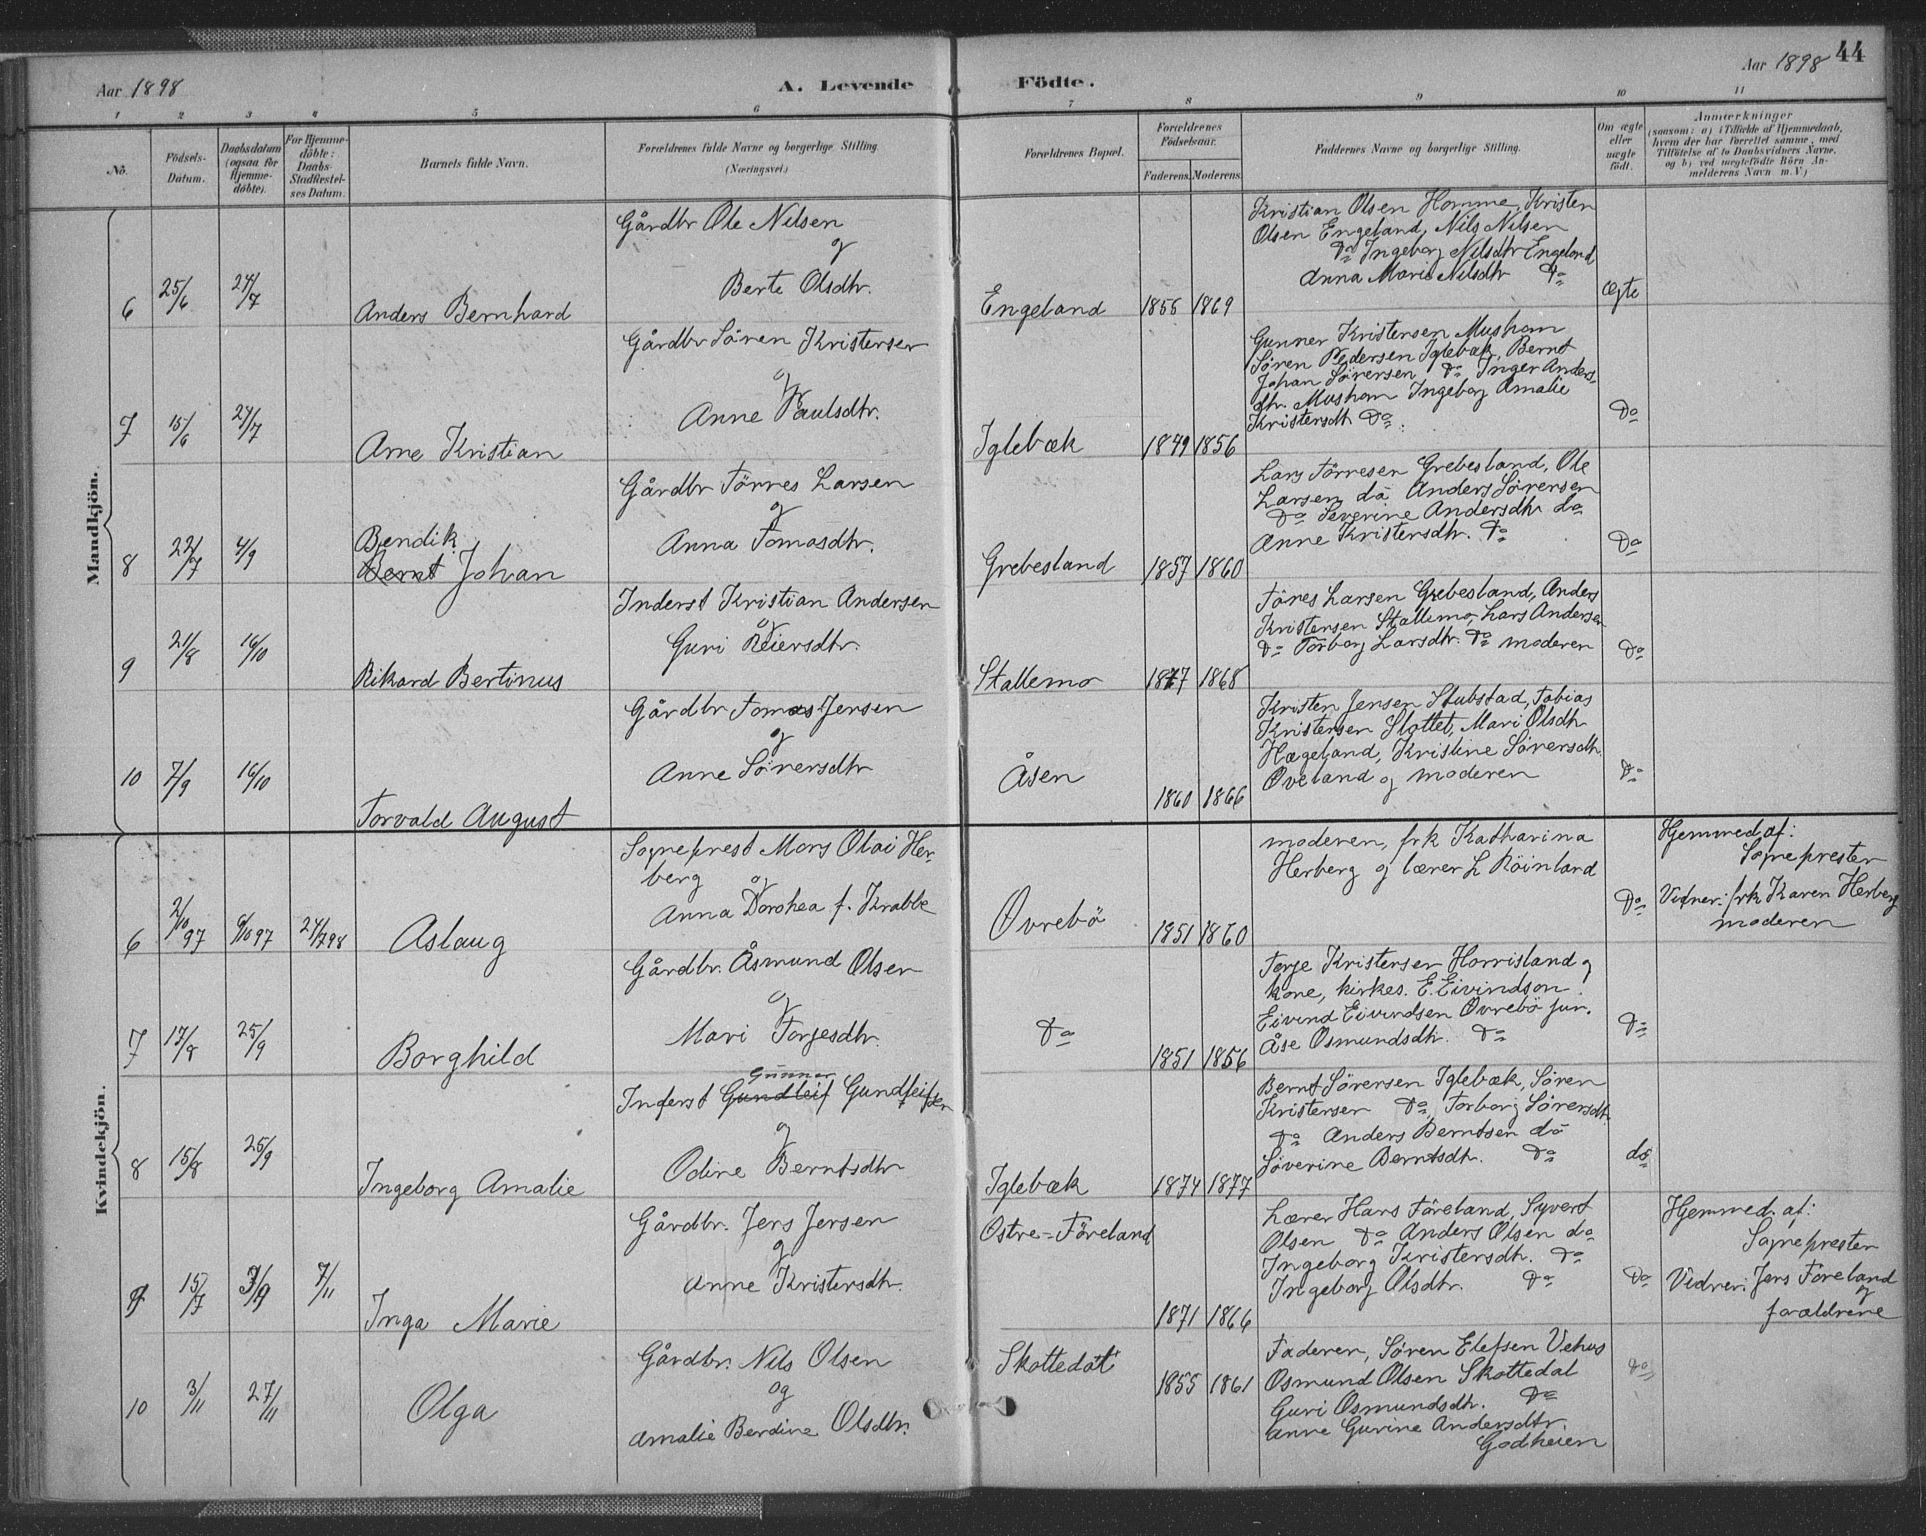 Aar 1898
A. Levende
Födte.
Aar 1898
44
1 2 3 4 5 6 7 8 9 10 11
No.
Födsels-
Datum.
Daabsdatum
(ogsaa for
Hjemme-
döbte).
For Hjemme-
döbte:
Daabs-
Stadfæstel-
ses Datum.
Barnets fulde Navn.
Forældrenes fulde Navne og borgerlige Stilling.
(Næringsvei.)
Forældrenes Bopæl.
Forældrenes
Födselsaar.
Faderens. Moderens.
Faddernes Navne og borgerlige Stilling.
Om ægte
eller
uægte
födt.
Anmærkninger
(saasom: a) i Tilfælde af Hjemmedaab,
hvem der har forrettet samme, med
Tilföielse af to Daabsvidners Navne,
og b) ved uægtefödte Börn An-
melderens Navn m. V.)
Mandkjön.
6 25/6 24/7
Anders Bernhard
Gårdbr Ole Nilsen
og
Berte Olsdtr.
Engeland
1856 1869
Kristian Olsen Homme, Kristen
Olsen Engeland, Nils Nilsen
Do Ingeborg Nilsdtr Engeland
Anna Marie Nilsdtr Do
Ægte
7 15/6 24/7
Arne Kristian
Gårdbr Sören Kristensen
og
Anne Paulsdtr.
Iglebæk
1849 1856
Gunner Kristensen Mushom
Sören Pedersen Iglebæk, Bernt
Johan Sörensen Do Inger Anders-
dtr. Mushom Ingeborg Amalie
Kristensdt Do
Do
8 22/7 4/9
Bendik
Bernt Johan
Gårdbr Törres Larsen
og
Anna Tomasdtr.
Grebesland
1857 1860
Lars Törresen Grebesland, Ole
Larsen do Anders Sörensen
Do Severine Andersdtr do
Anne Kristensdtr. Do
Do
9 21/8 16/10
Rikard Bertinus
Inderst Kristian Andersen
og
Guri Reiersdtr.
Stallemo
1877 1868
Töres Larsen Grebesland, Anders
Kristensen Stallemo, Lars Andersen
Do Torborg Larsdtr. Do moderen
Do
10 7/9 16/10
Torvald August
Gårdbr Tomas Jensen
og
Anne Sörensdtr
Åsen
1860 1866
Kristen Jensen Stubstad, Tobias
Kristensen Slottet, Mari Olsdtr
Hægeland, Kristine Sörensdtr.
Öveland og moderen
Do
Kvindekjön.
6 2/10 97 9/10 97 24/7 98
Aslaug
Sogneprest Mons Olai Her-
berg og
Anna Dorohea f. Krabbe
Övrebö
1851 1860
moderen, frk Katharina
Herberg og lærer L Röinland
Do
Hjemmed af:
Sognepresten
Vidner: frk Karen Herberg
moderen
7 17/8 25/9
Borghild
Gårdbr. Åsmund Olsen
og
Mari Torjesdtr.
Do
1851 1856
Terje Kristensen Horrisland og
kone, kirkes. E. Eivindson
Eivind Eivindsen Övrebö jun.
Åse Osmundsdtr. Do
Do
8 15/8 25/9
Ingeborg Amalie
Gunnar
Inderst Gundleif Gundleifsen
og
Odine Berntsdtr
Iglebæk
1874 1877
Bernt Sörensen Iglebæk, Sören
Kristensen Do, Torborg Sörensdt.
Do Anders Berntsen do
Söverine Berntsdtr. Do
do
9 15/7 3/9 7/11
Inga Marie
Gårdbr. Jens Jensen
og
Anne Kristensdtr.
Östre-Föreland
1871 1866
Lærer Hans Föreland, Syvert
Olsen Do Anders Olsen do
Ingeborg Kristensdtr. Do
Ingeborg Olsdtr. Do
Do
Hjemmed. af:
Sognepresten
Vidner: Jens Föreland
og
forældrene
10 3/11 27/11
Olga
Gårdbr. Nils Olsen
og
Amalie Berdine Olsdtr.
Skottedal
1855 1861
Faderen, Sören Elefsen Vehus
Osmund Olsen Skottedal
Guri Osmundsdtr. Do
Anne Gurine Andersdtr.
Godheien
Do